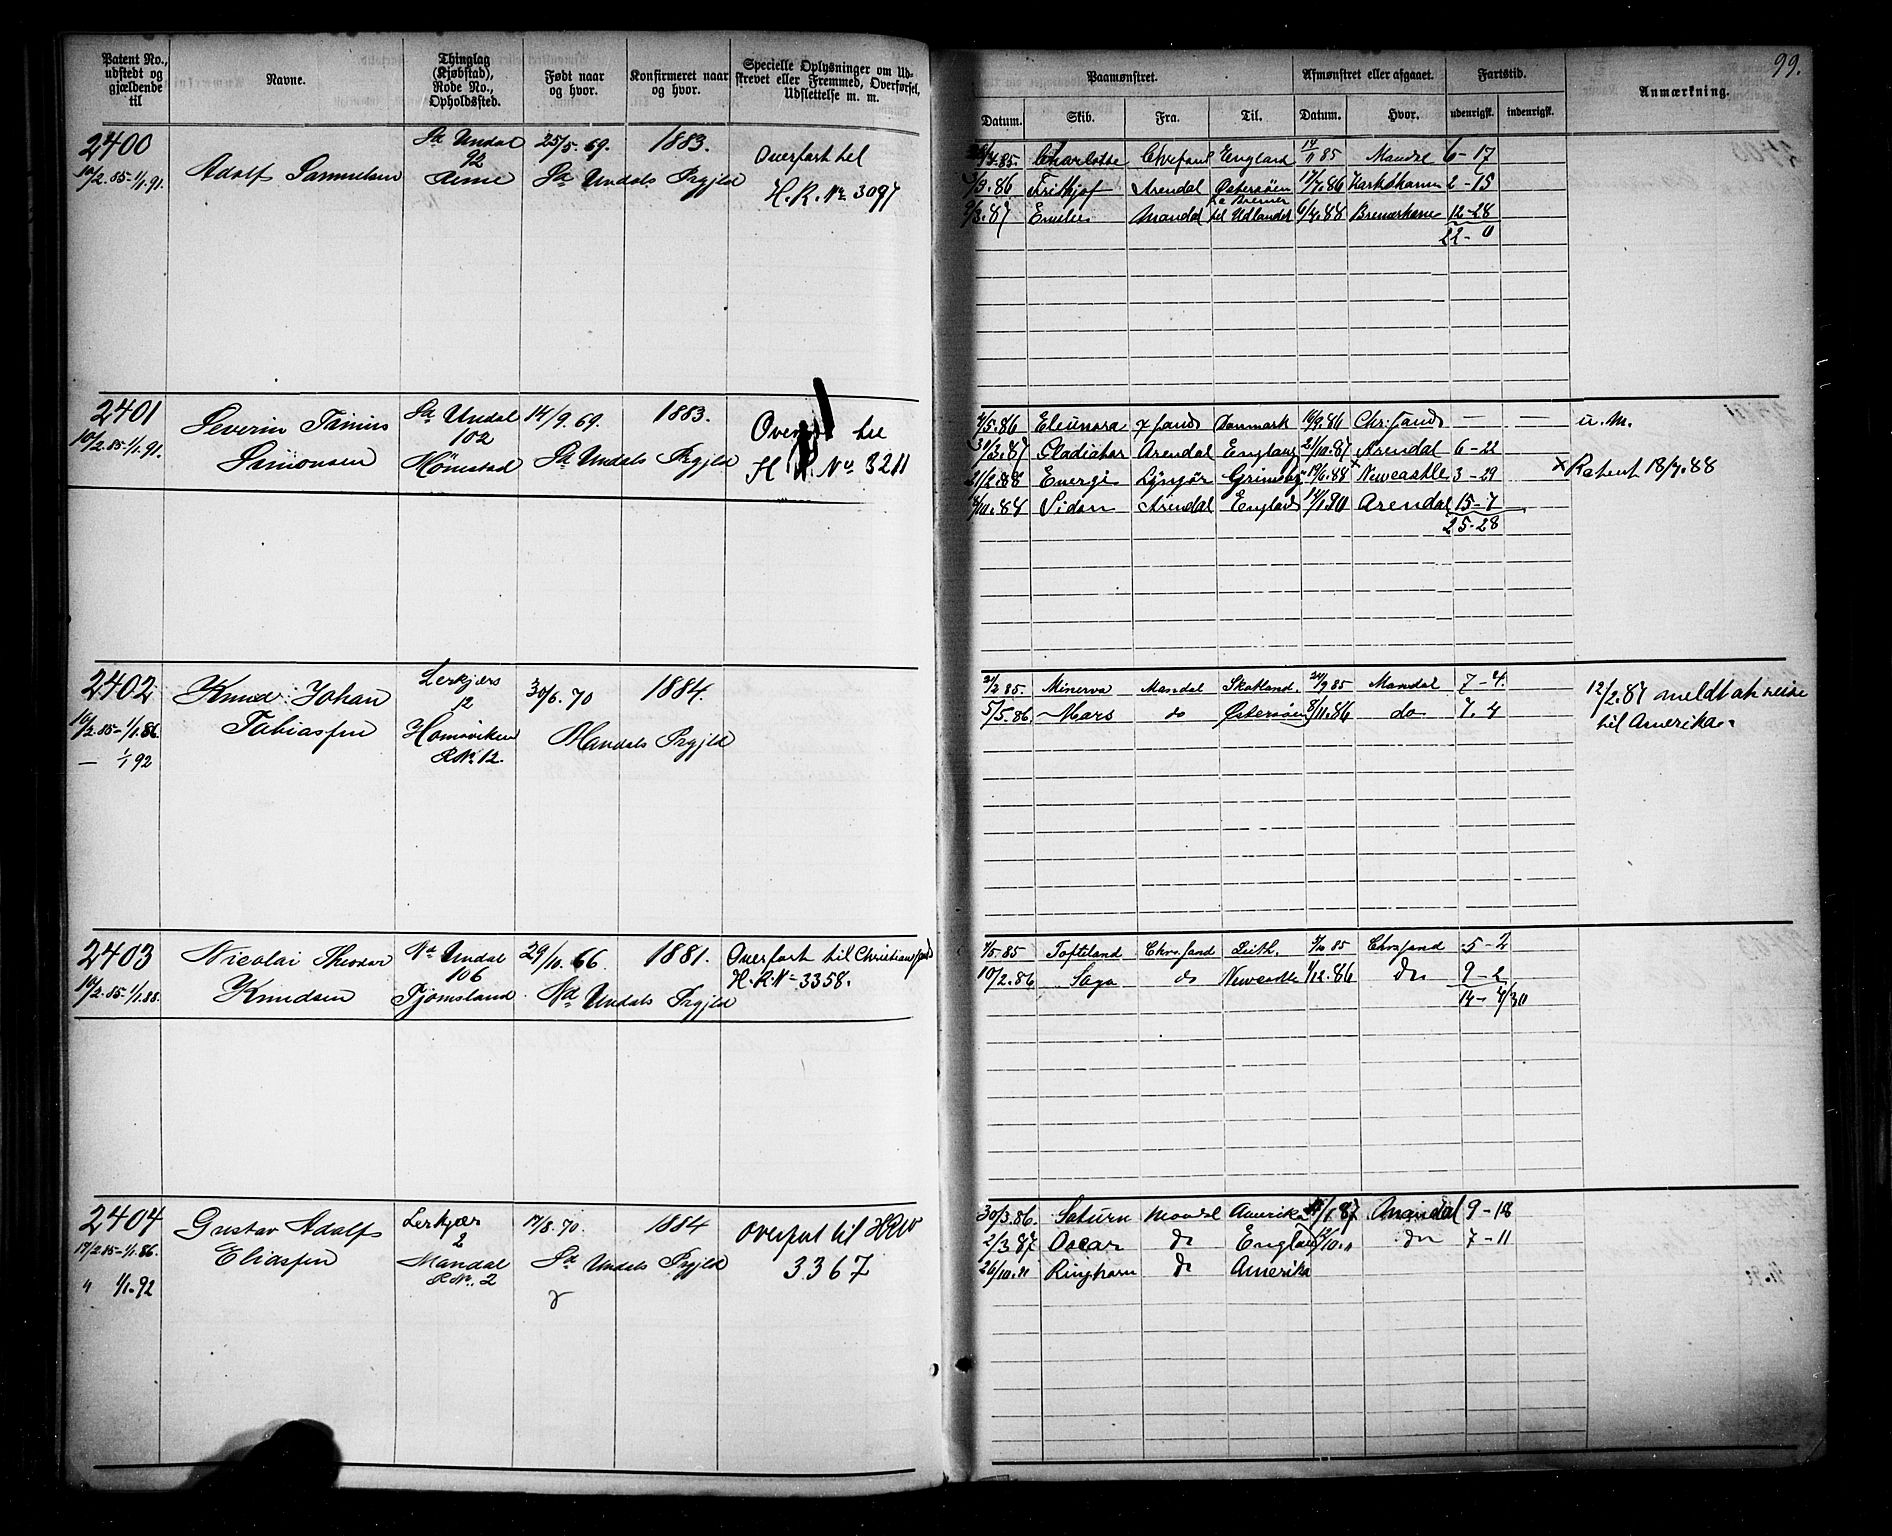 99.
Patent No., udstedt og gjældende til
Navne.
Thinglag (Kjøbstad), Rode No., Opholdssted.
Født naar og hvor.
Konfirmeret naar og hvor.
Specielle Oplysninger om Udskrevet eller Fremmed, Overførsel, Udslettelse m. m.
Paamønstret.
Afmønstret eller afgaaet.
Fartstid.
Anmærkning.
Datum. Skib. Fra. Til. Datum. Hvor. udenrigsk. indenrigsk.
2400
10/2.85-1/1.91.
Adolf Samuelsen
Sa Undal
92
25/5.69. 1883.
Sa Undals Prgjld
Overført til
H.R. No 3097
Charlotte England 14/11 85 Mandal 6-17
/3.86 Fridtjof Arendal Østersøen 17/7.86 2-15
9/3.87 Emelie Mandal til Udlandet 6/4.88 12-28
22-0
2401
10/2.85-1/1.91.
Severin
Simonsen
Sa Undal
102
14/9.69. 1883.
Sa Undals Prgjld
til
H No 3211
/5.86 Eleonora Danmark 16/9.86 Chr.sand — — u.M.
31/3.87 Gladiator Arendal England 21/10.87 Arendal 6-22
21/2.88 Energi Lyngør Grimsby 19/6.88 × Newcastle 3-29
× Patent 18/7.88
/10.88 Sidon Arendal England Arendal 15-7
25-28
2402
10/2.85-1/1.86
— 1/1 92
Knud Johan
Tobiassen
12
R No 12.
30/6.70 1884.
Mandals Prgjld
2/2 85. Minerva Mandal Skotland. 24/9 85 Mandal 7-4.
5/5.86 Mars do Østersøen 8/11.86 do 7.4
12/2.87 meldt at reise
til Amerika.
2403
10/2.85-1/1.88.
Nicolai Theodor
Knudsen
Na Undal
106
Tjomsland
29/10.66 1881.
Na Undals Prgjld
Overført til Christiansand
H.R.No 3358.
/5.85 Tofteland Chrsand Leith. 85 Chrsand 5-2
10/2.86 Saga do Newcastle /12.86 do 9-2
14-4/30
2404
17/2.85-1/1.86.
" 1/1.92
Gustav Adolf
Eliassen
Lerkjær
2
Mandal
R No. 2
17/8.70. 1884
Sa Undals Prgjld
Overført til H R No
3367
30/3.86. Saturn Mandal Amerika /1.87 Mandal 9-18
2/3.87 Oscar do England /10." do 7-11
26/10." Ringhorn do Amerika